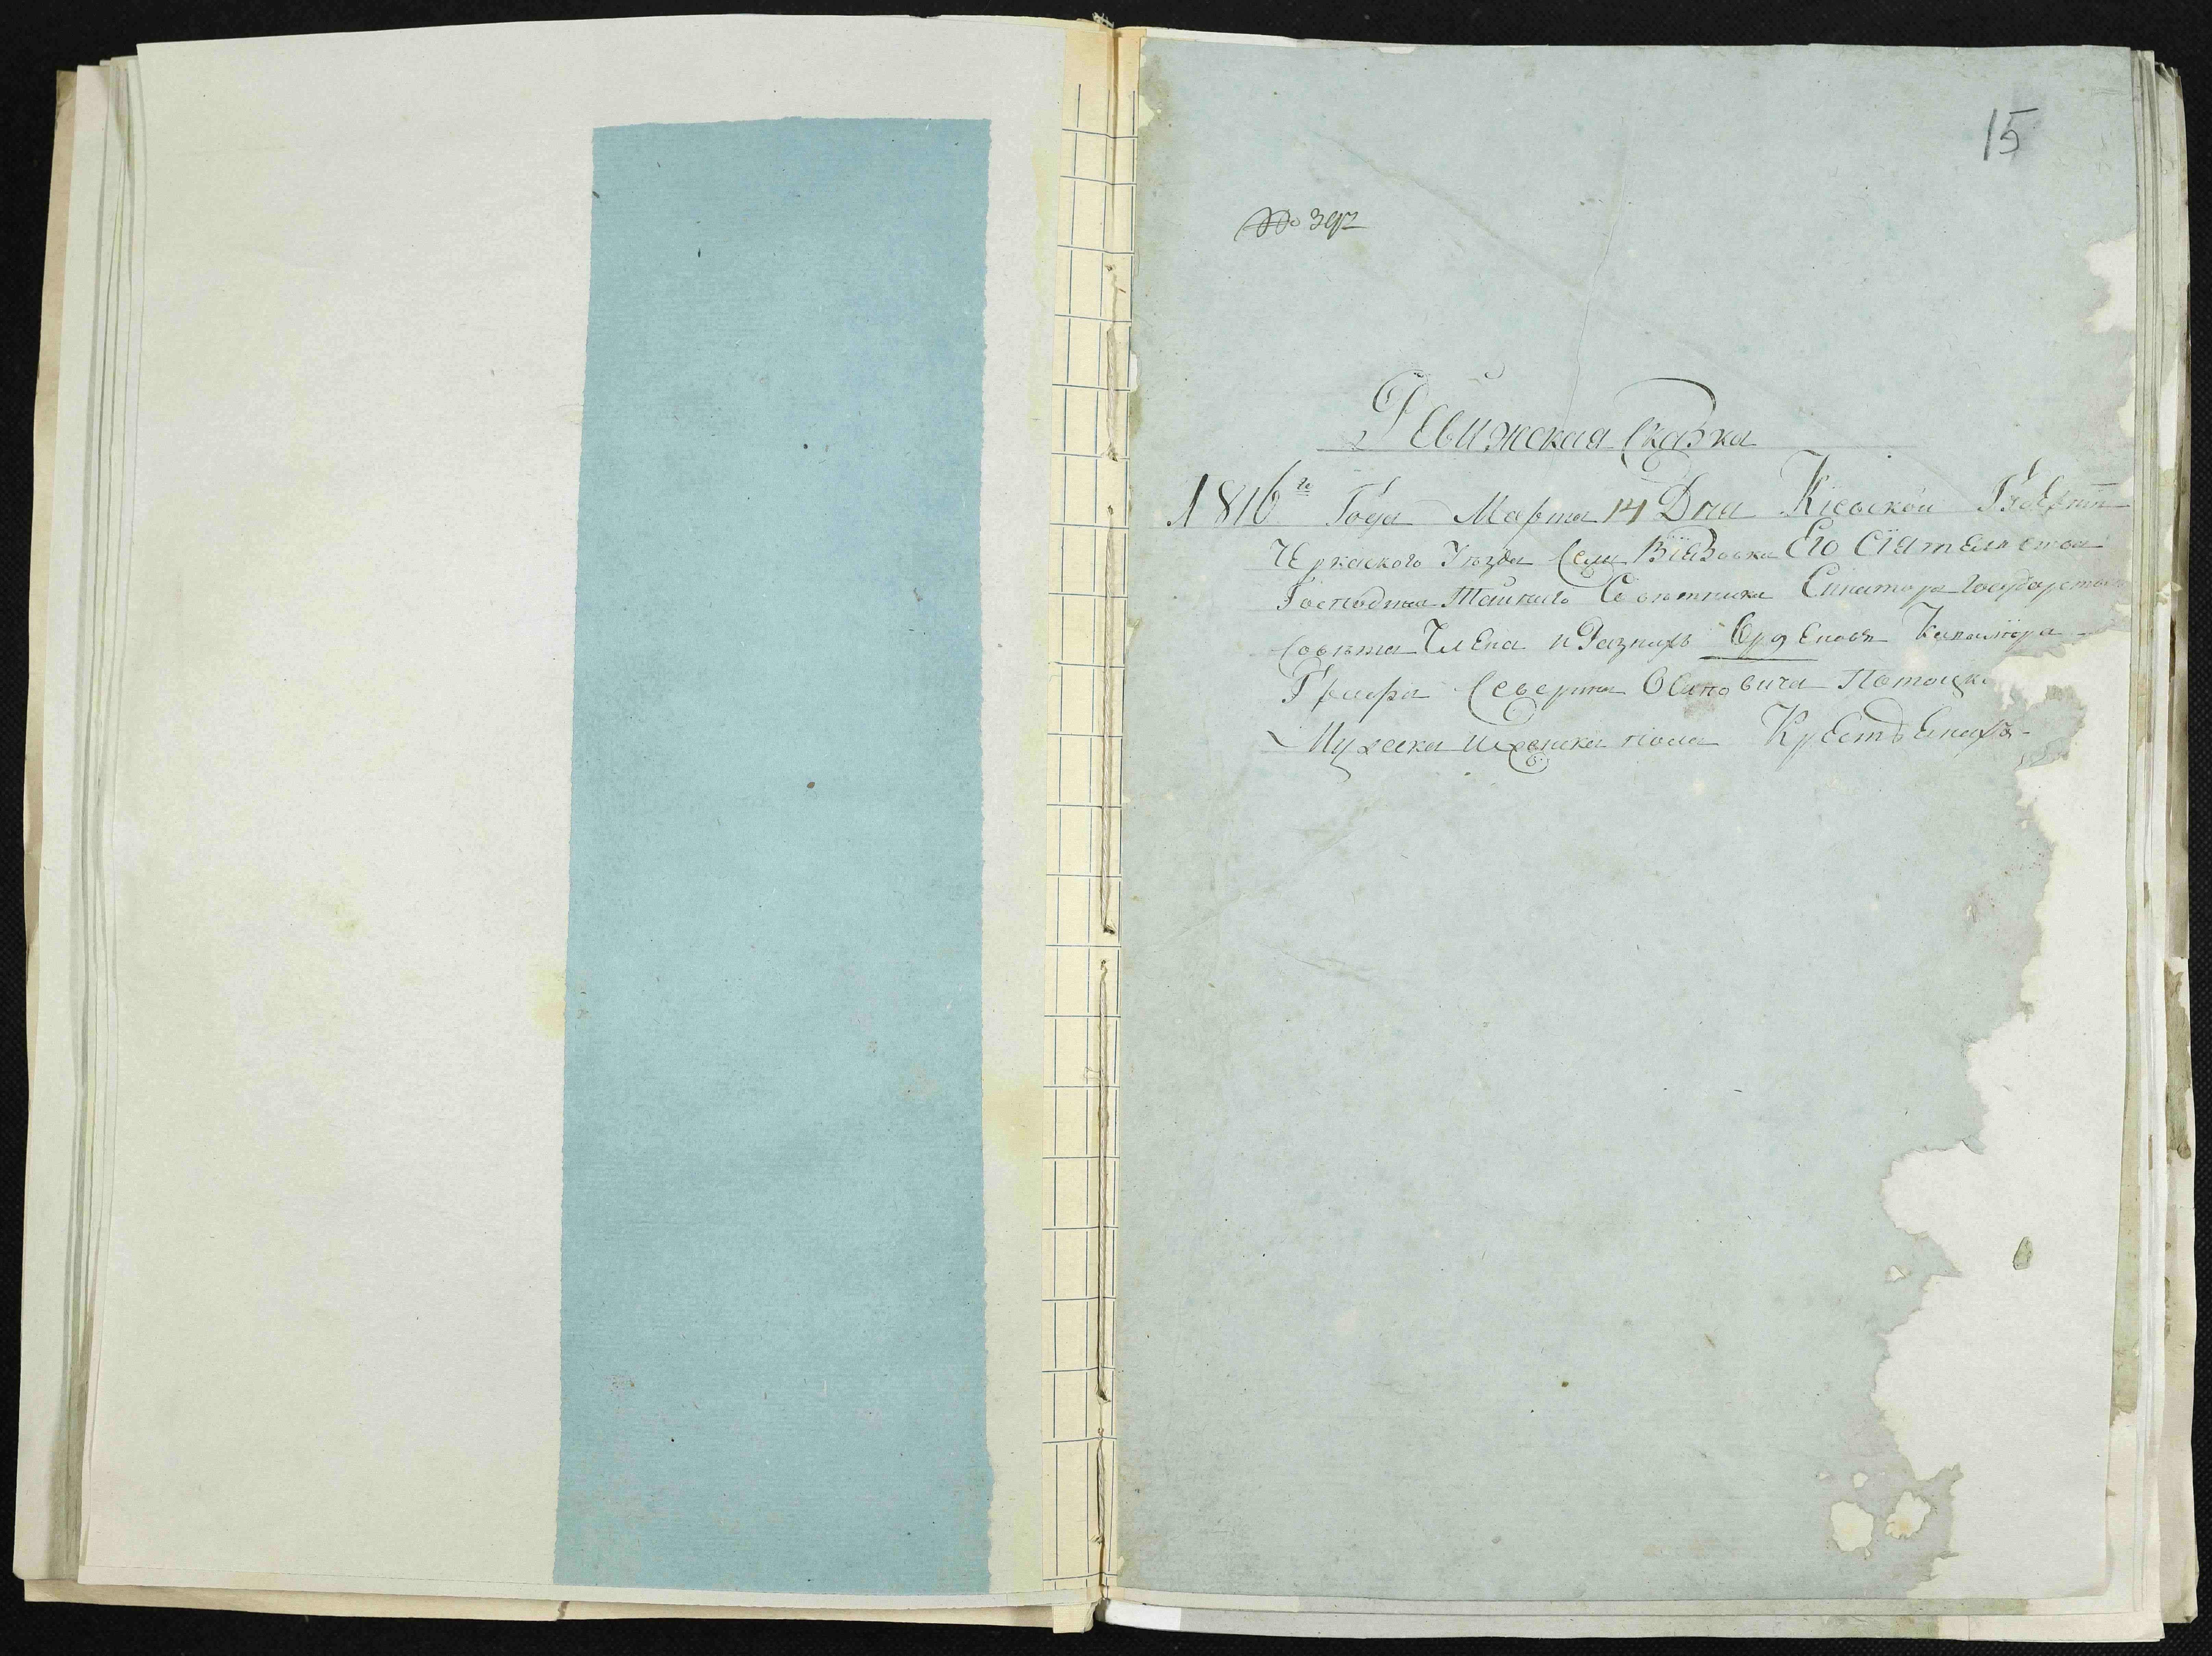 15
№ 392
Ревижская Сказка
1816го Года Марта 14 Дня Кіевской Губерн
Черкаского Уезда Села Віязовка Его Сіятельства
Господина Тайнаго Советника Сенатора Государств
Совета Члена и Разнихъ Орденовъ Кавалйера
Графа Северина Осиповича Потоцк
Мужеска и Женска пола Крестьенахъ